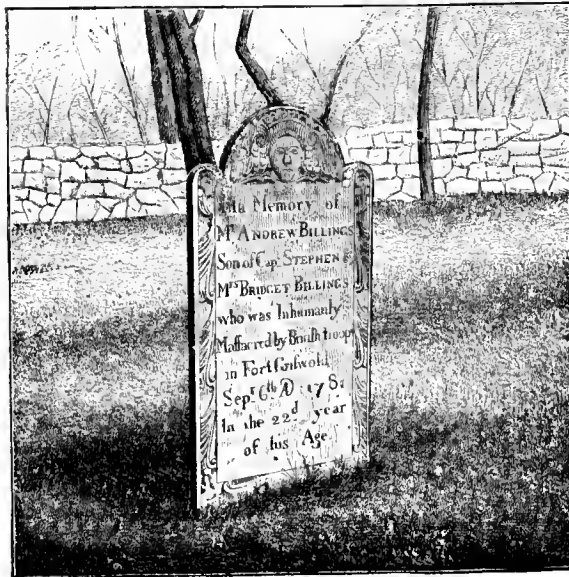 In Memory of
Mr ANDREW BILLINGS
Son of Capt STEPHEN &
Mrs BRIDGET BILLINGS
who was Inhumanly
Maſsacred by British troops
in Fort Griswold
Sepr 6th AD 1781
In the 22d year
of his Age